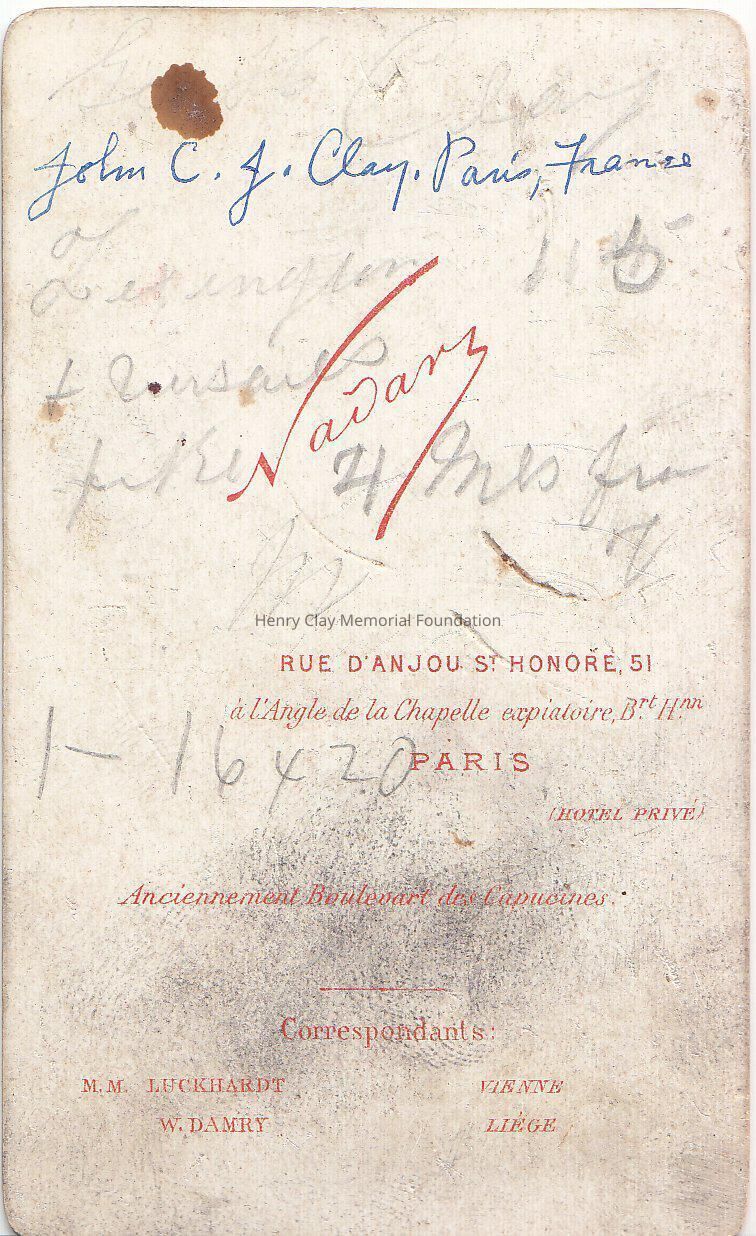 Clay
John C. J. Clay. Paris, France
Lexington 115
+ Versailles
Nadar
pike 4 Mls
Henry Clay Memorial Foundation
RUE D'ANJOU ST HONORÉ, 51
à l'Angle de la Chapelle expiatoire, Brt Hnn
PARIS
1 - 16 x 20
(HOTEL PRIVÉ)
Anciennement Boulevart des Capucines.
Correspondants:
M.M. LUCKHARDT VIENNE
W. DAMRY LIÉGE